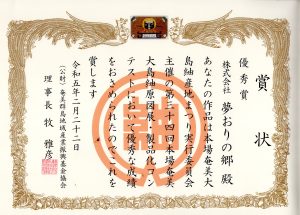 賞状
優秀賞
株式会社 夢おりの郷 殿
あなたの作品は本場奄美大
島紬産地まつり実行委員会
主催の第三十四回本場奄美
大島紬原図展・製品化コン
テストにおいて優秀な成績
をおさめられたのでこれを
賞します
令和五年二月二十二日
(公財) 奄美群島地域産業振興基金協会
理事長 牧 雅彦